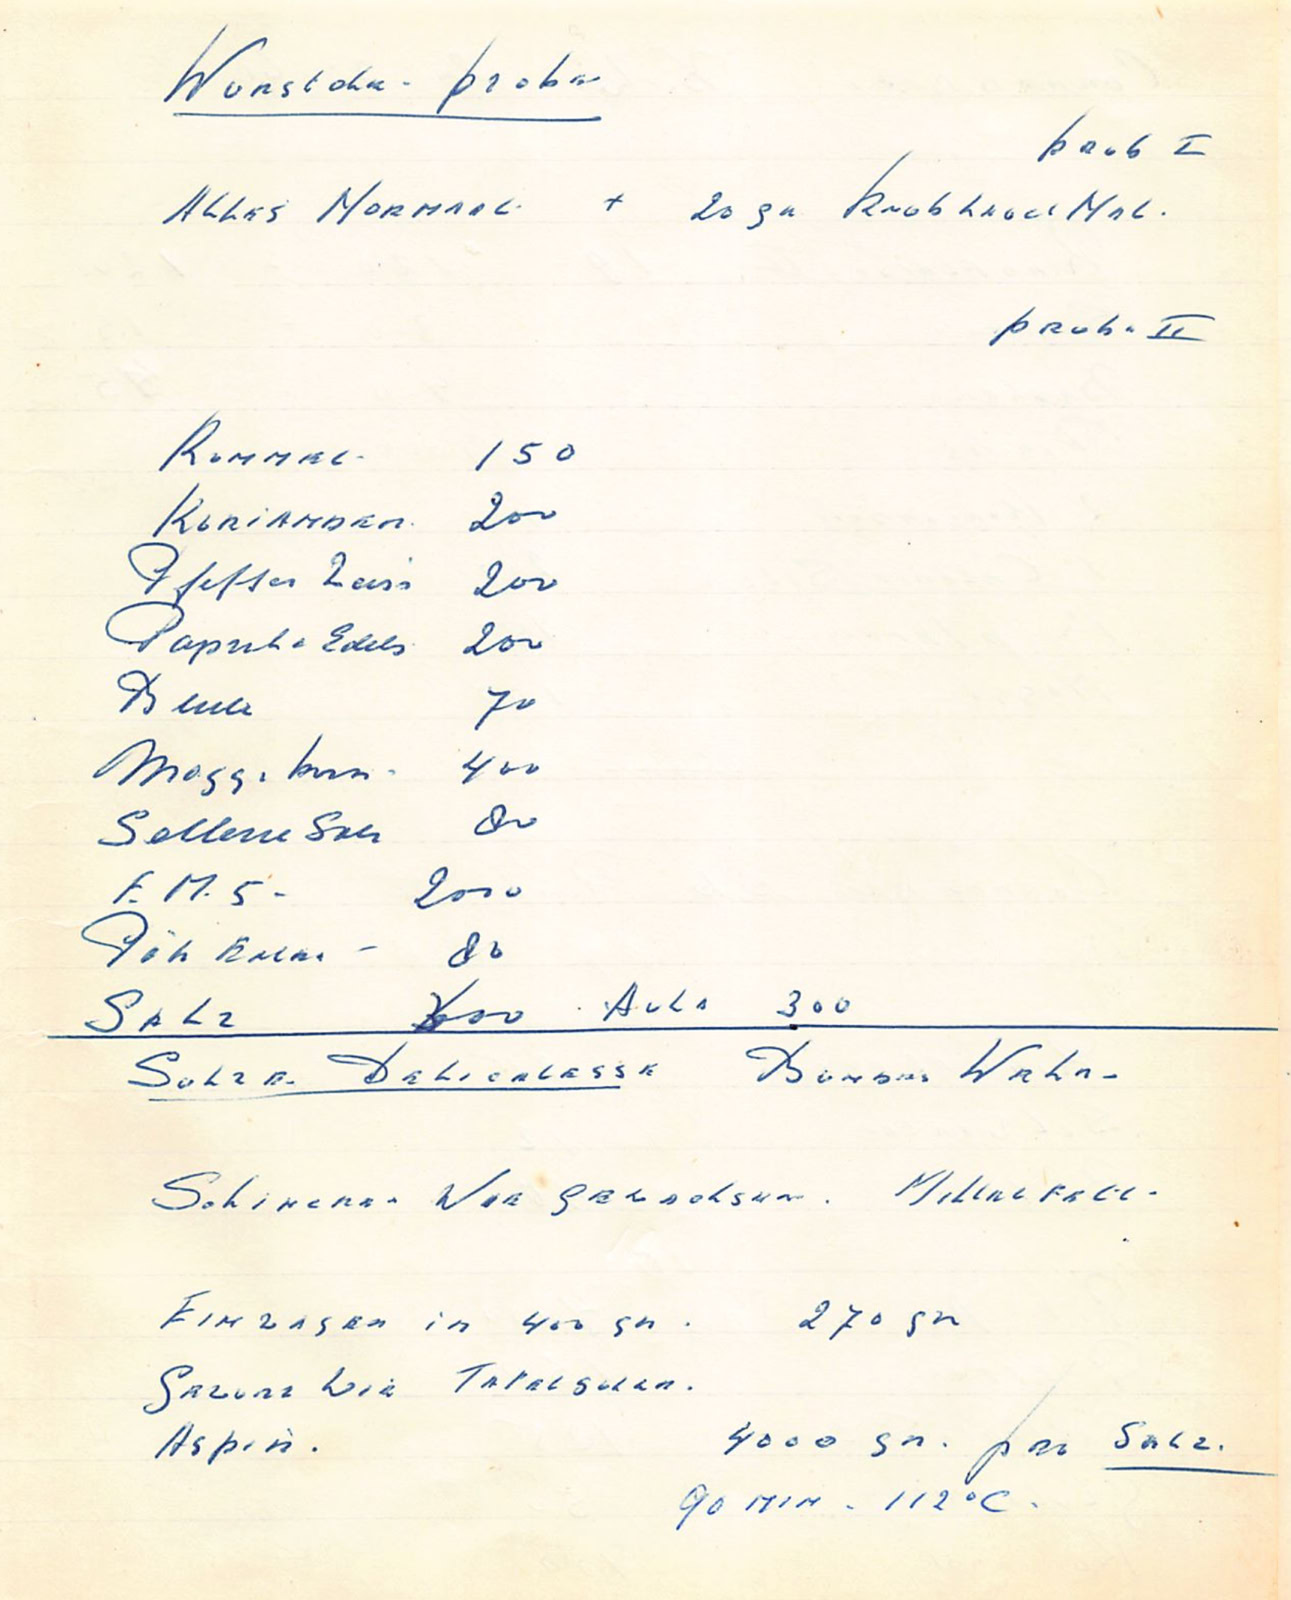 Wurstche - probe
prob I
Alles Normaal + 20 gr Knoblauch Mal.
probe II
Kummel 150
Koriander 200
Pfeffer Weiss 200
Paprika Edels 200
70
Maggi 400
Sellerie Salz 80
F. M. S - 2000
Pök - 80
Salz 000 300
Sulze Delicatesse
Schincken Wie gewachsen.
Einwagen in 400 gr. 270 gr
Gewurz wie Tafelsulze.
Aspik. 4000 gr. pro Salz.
90 min. 112°C.